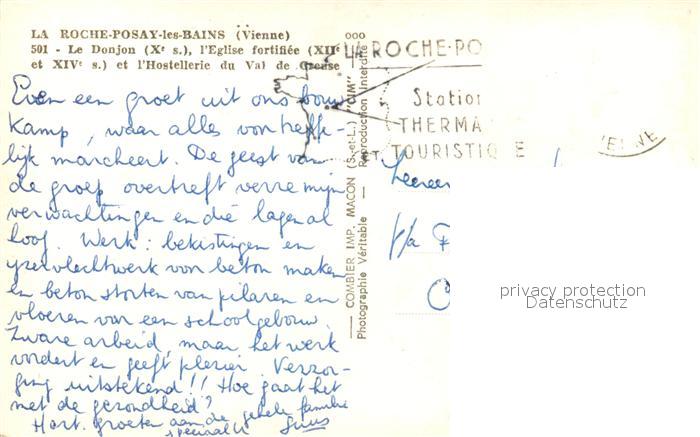 LA ROCHE-POSAY-les-BAINS (Vienne)
501 - Le Donjon (Xe s.), l'Eglise fortifiée (XIIe
et XIVe s.) et l'Hostellerie du Val de Creuse
Even een groet uit ons bouw
kamp, waar alles voortreffe-
lijk marcheert. De geest van
de groep overtreft verre mijn
verwachtingen en die lagen al
hoog. Werk: bekistingen en
ijzervlechtwerk voor beton maken
en beton storten van pilaren en
vloeren van een schoolgebouw.
Zware arbeid, maar het werk
vordert en geeft plezier. Verzor-
ging uitstekend!! Hoe gaat het
met de gezondheid?
Hart. groeten aan de gehele familie
speciaal
Guus
COMBIER IMP. MACON (S.-et-L.) "CIM"
Photographie Véritable - Reproduction Interdite
LA ROCHE-PO
Station
THERMA
ET TOURISTIQUE
VIENNE
p/a
privacy protection
Datenschutz